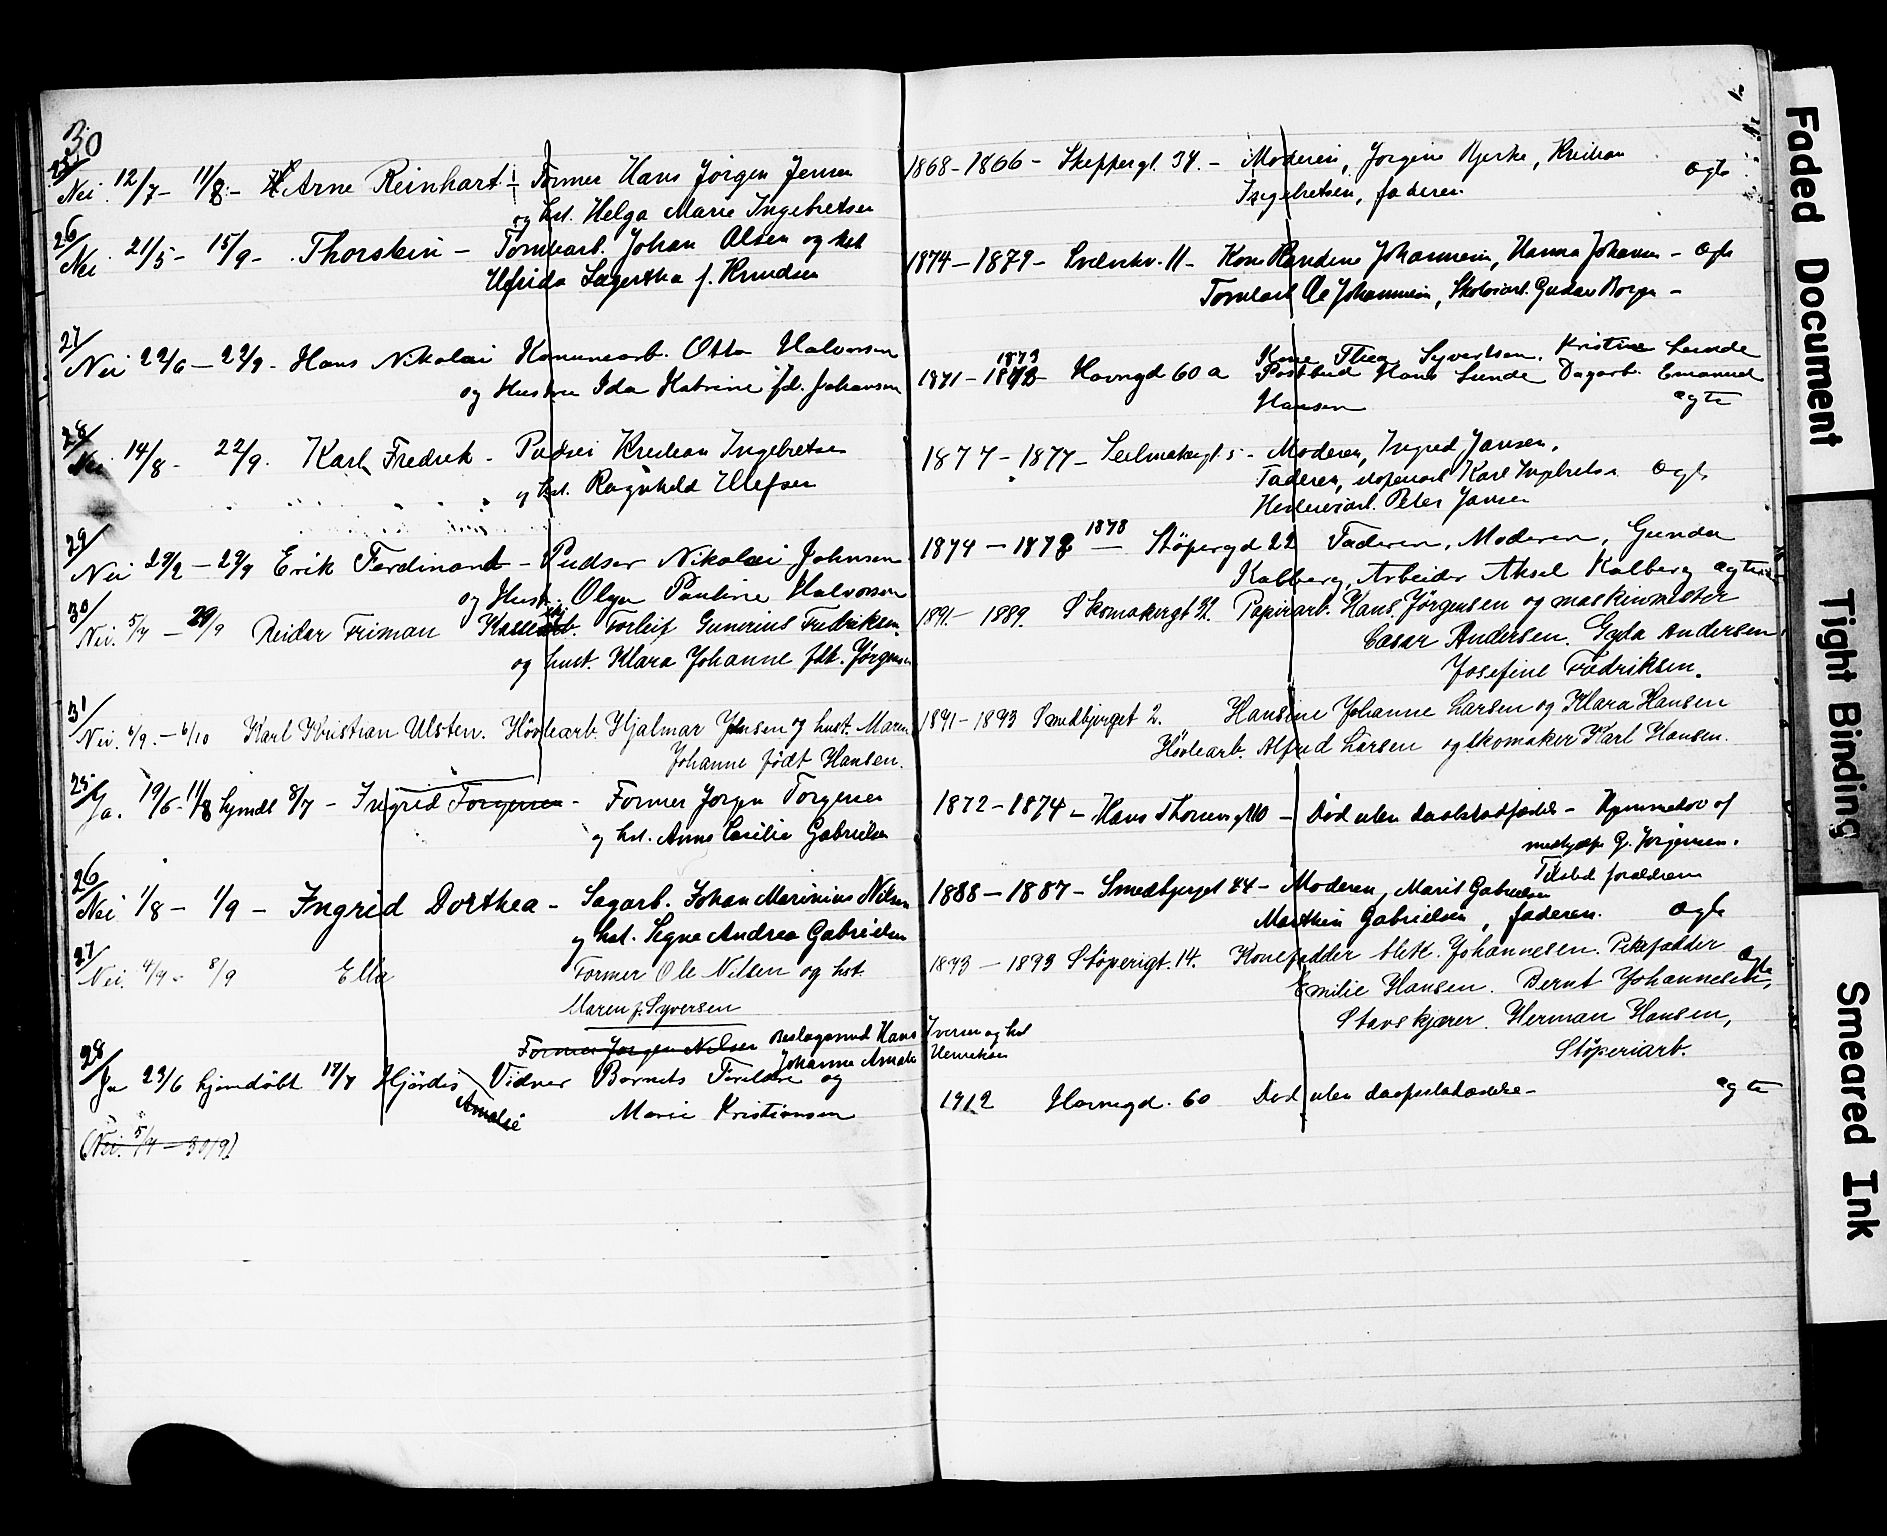 30
25/ Nei. 12/7 - 11/8 - Arne Reinhart - Former Hans Jörgen Jensen 1868 - 1866 - Skeppergt. 34. - Moderen, Jorgine Bjerke, Kristian ægte
og hst. Helga Marie Ingebretsen Ingebretsen, faderen.
26/ Nei 21/5 - 15/9 - Thorstein - Tombarb. Johan Olsen og hst. 1874 - 1879 - 11 - Kone Randine Johannesen, Hanna Johansen - ægte
Lagertha f. Knudsen Tomtearb. Ole Johannesen, Gustav Borge -
27/ Nei 22/6 - 22/9 - Hans Nikolai Komunearb. Otto Halvorsen 1871 - 1873 Havnegd 60 a Kone Thea Syvertsen. Kristine Lunde
og Hustru Ida Katrine fd. Johansen Postbud Hans Lunde Dagarb. Emanuel
Hansen ægte
28/ Nei 14/8 - 22/9. Karl Fredrik - Pudser Kristian Ingebretsen 1877 - 1877 - Seilmakergt. 5 - Moderen, Ingrid Jansen,
og hst. Ragnhild Ellefsen Faderen, støperiarb. Karl Ingebretsen ægte
Peter Jansen
29/ Nei 23/2 - 29/9 Erik Ferdinand - Pudser Nikolai Johnsen 1874 - 1878 1878 - Støpergd 22 Faderen, Moderen, Gunda
og Hust. Olga Pauline Halvorsen Kalberg, Arbeider Aksel Kalberg ægte
30/ Nei. 5/7 - 29/9 Reidar Friman Torleif Gunerius Fredriksen. 1891 - 1889. Skomakergt 31. Papirarb. Hans Jørgensen og maskinmester
og hust. Klara Johanne fdt. Jørgensen Cæsar Andersen. Gyda Andersen
Josefine Fredriksen.
31/ Nei. 6/9 - 6/10 Karl Kristian Ulsten. Høvlearb. Hjalmar Jensen og hust. Maren 1891 - 1893 Smedbjerget 2. Hansine Johanne Larsen og Klara Hansen
Johanne født Hansen. Høvlearb. Alfred Larsen og skomaker Karl Hansen.
25/ Ja. 19/6 - 11/8 hjemdl 8/7 - Ingrid Torgersen - Former Jorgen Torgersen 1872 - 1874 - Hans Thorsensgt 10 - Død uten daabstadfæstelse - Hjemmedøbt af
og hst. Anna Cecilie Gabrielsen G. Jørgensen.
Tilsted forældrene
26/ Nei 1/8 - 1/9 - Ingrid Dorthea - Sagarb. Johan Marinius Nilsen 1888 - 1887 - Smedbjerget 24 - Moderen, Marit Gabrielsen
og hst. Signe Andrea Gabrielsen Marthin Gabrielsen, faderen. ægte
27/ Nei. 4/7 - 8/9 Ella Former Ole Nilsen og hst. 1893 - 1893 Støperigt. 14. Konefadder Johannesen. Pikefadder ægte
Maren f. Syversen Emilie Hansen. Bernt Johannesen,
Stavskjærer. Herman Hansen,
Støperiarb.
Former Jorgen Nilsen Beslagsmed Hans Iversen og hst
Johanne Amalie Henriksen
28/ Ja 23/6 hjemdøbt 18/7 Hjördis Vidner Barnets Foreldre og 1912 Havnegd. 60 Død uten daapsstadfæstelse - ægte
Amalie Marie Kristiansen
(Nei. 5/7 - 30/9)
Faded Document
Tight Binding
Smeared Ink